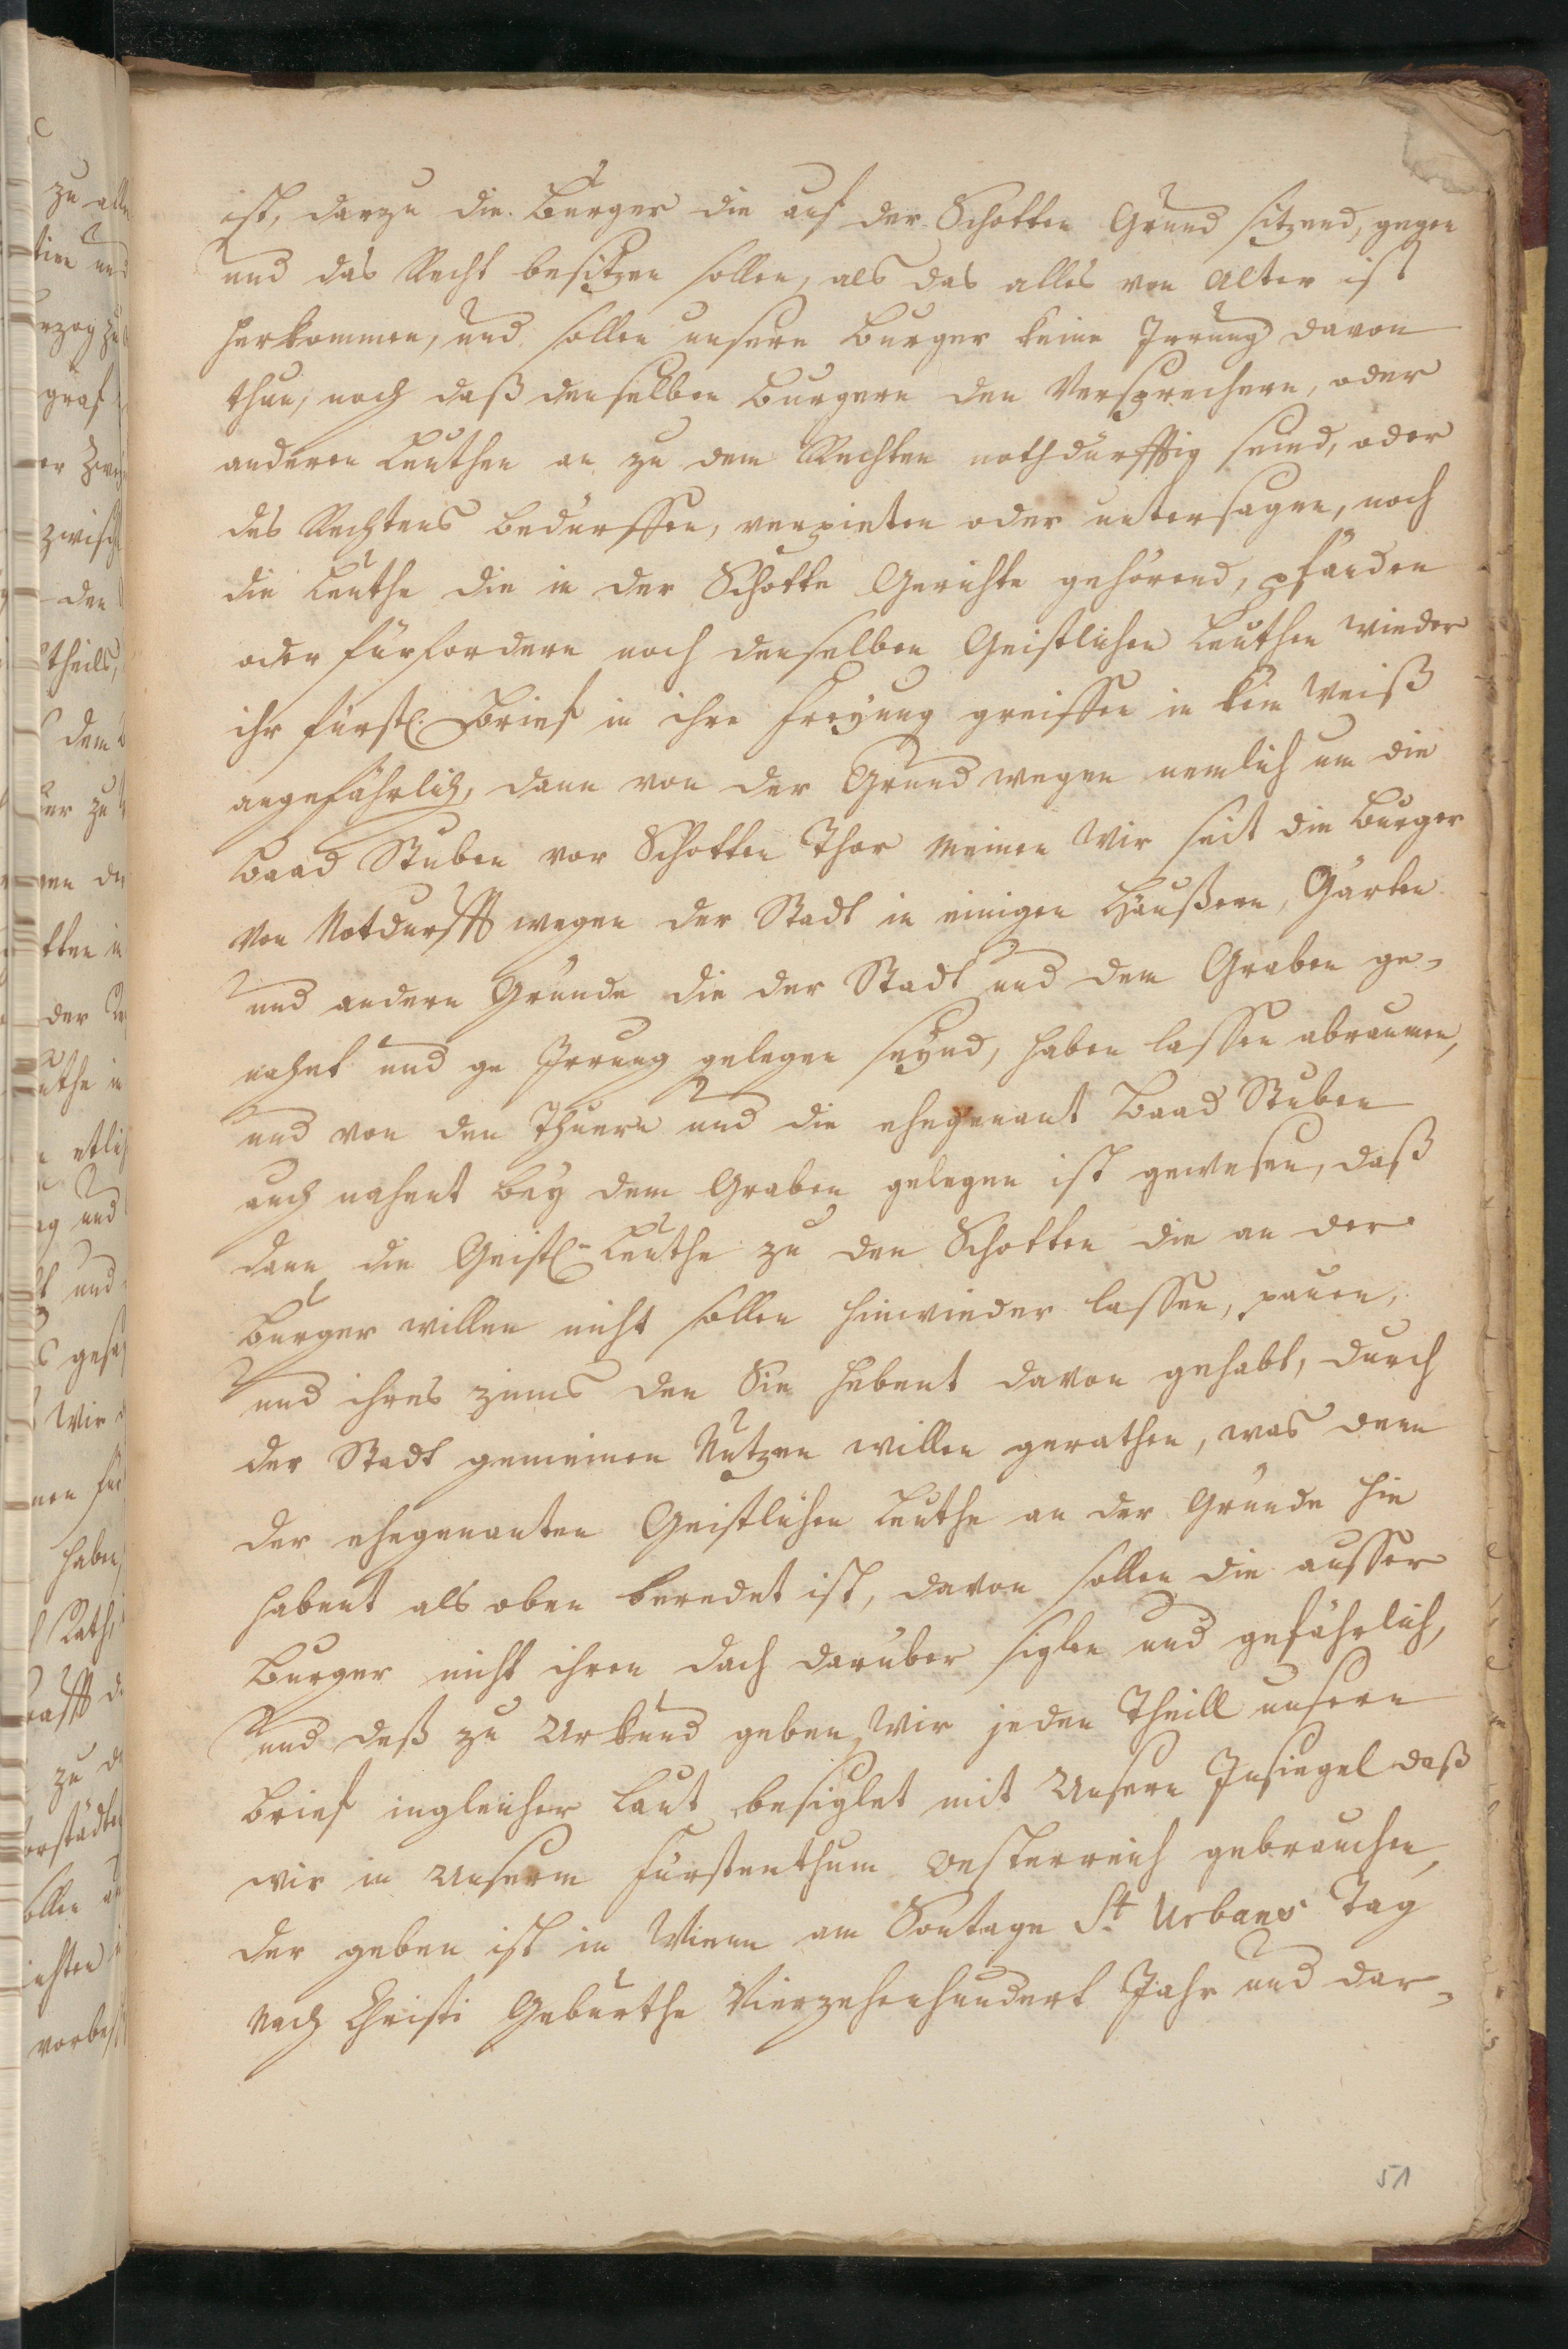 ist, darzu die Burger die auf der Schotten Grund sitzend, gegen
und das Recht besitzen sollen, als das alles von Alter ist
herkommen, und sollen unsere Burger keine Irrung davon
thun, noch daß denselben Burgern den Versprechern, oder
anderen Leuthen an zu dem Rechten nothdürfftig seind, oder
des Rechtens bedürffen, verpieten oder untersagen, noch
die Leuthe die in der Schotte Gerichte gehörend, pfänden
oder fürfordern noch denselben Geistlichen Leuthen wieder
ihr fürstl. Brief in ihre Freyung greiffen in kein Weiß
angefährlich, dann von der Grund wegen nemlich um die
Baad Stuben vor Schotten Thor meinen Wir seit die Burger
von Notdurfft wegen der Stadt in einigen Häußern, Gärten
und andern Gründe die der Stadt und dem Graben ge-
nahnt und ge Irrung gelegen seynd, haben lassen abraumen,
und von den Thuern und die ehegenant Baad Stuben
auch nahent bey dem Graben gelegen ist gewesen, daß
dann die Geistl. Leuthe zu den Schotten die an der
Burger willen nicht sollen hinwieder lassen, pauen,
und ihres zinns den Sie habent davon gehabt, durch
der Stadt gemeinen Nutzen willen gerathen, was dann
der ehegenanten Geistlichen Leuthe an der Gründe hin
habent als oben beredet ist, davon sollen die ausser
Burger nicht ihren dach darüber siglen und gefährlich,
und deß zu Urkund geben Wir jeden Theill unsern
Brief ingleicher Laut besiglet mit Unsern Insiegel daß
wir in Unserm Fürstenthum Oesterreich gebrauchen,
der geben ist in Wienn am Sontage St. Urbans Tag
nach Christi Geburthe Vierzehenhundert Jahr und dar-
51